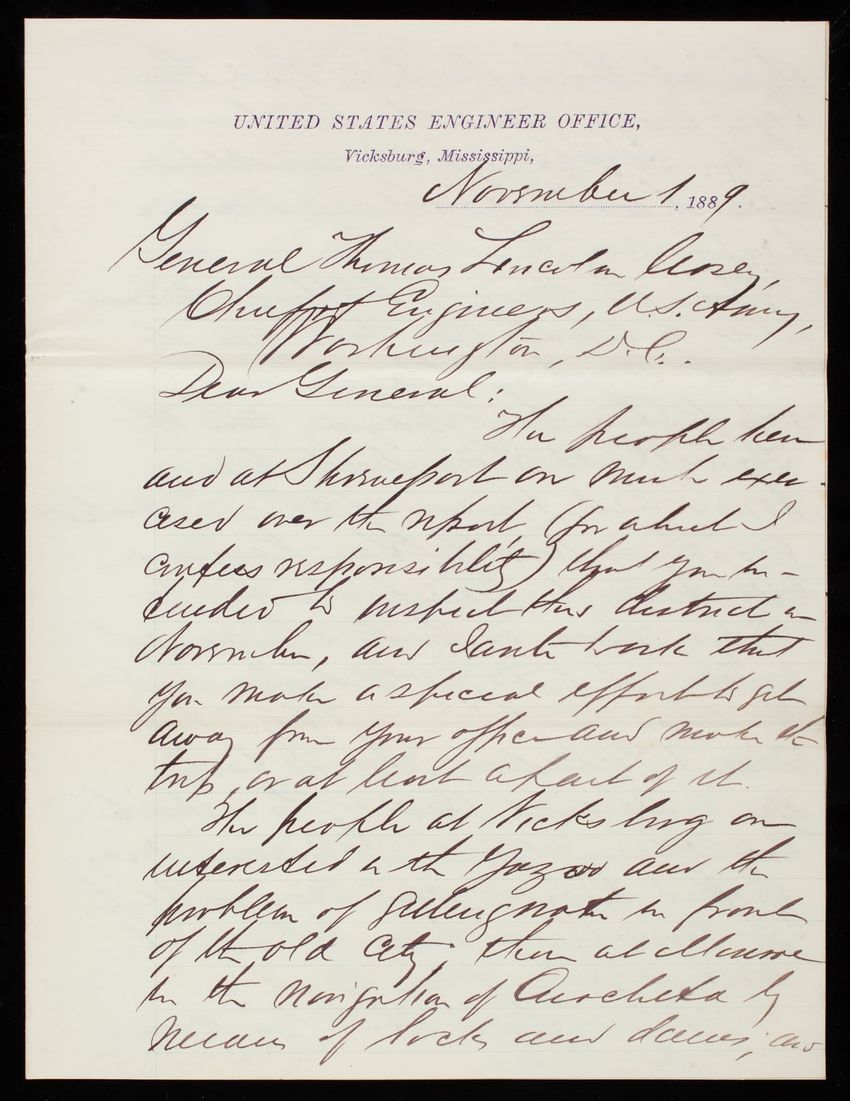 UNITED STATES ENGINEER OFFICE,
Vicksburg, Mississippi,
November 1, 1889.
General Thomas Lincoln Casey,
Chief of Engineers, U.S. Army,
Washington, D.C..
Dear General:
The people here
and at Shreveport are much exer-
cised over the report, (for which I
confess responsibility) that you in-
tended to inspect this district in
November, and I write to ask that
you make a special effort to get
away from your office and make the
trip, or at least a part of it.
The people at Vicksburg are
interested in the Yazoo and the
problem of getting water in front
of the old city; those at Monroe
in the navigation of Ouachita by
means of locks and dams; and